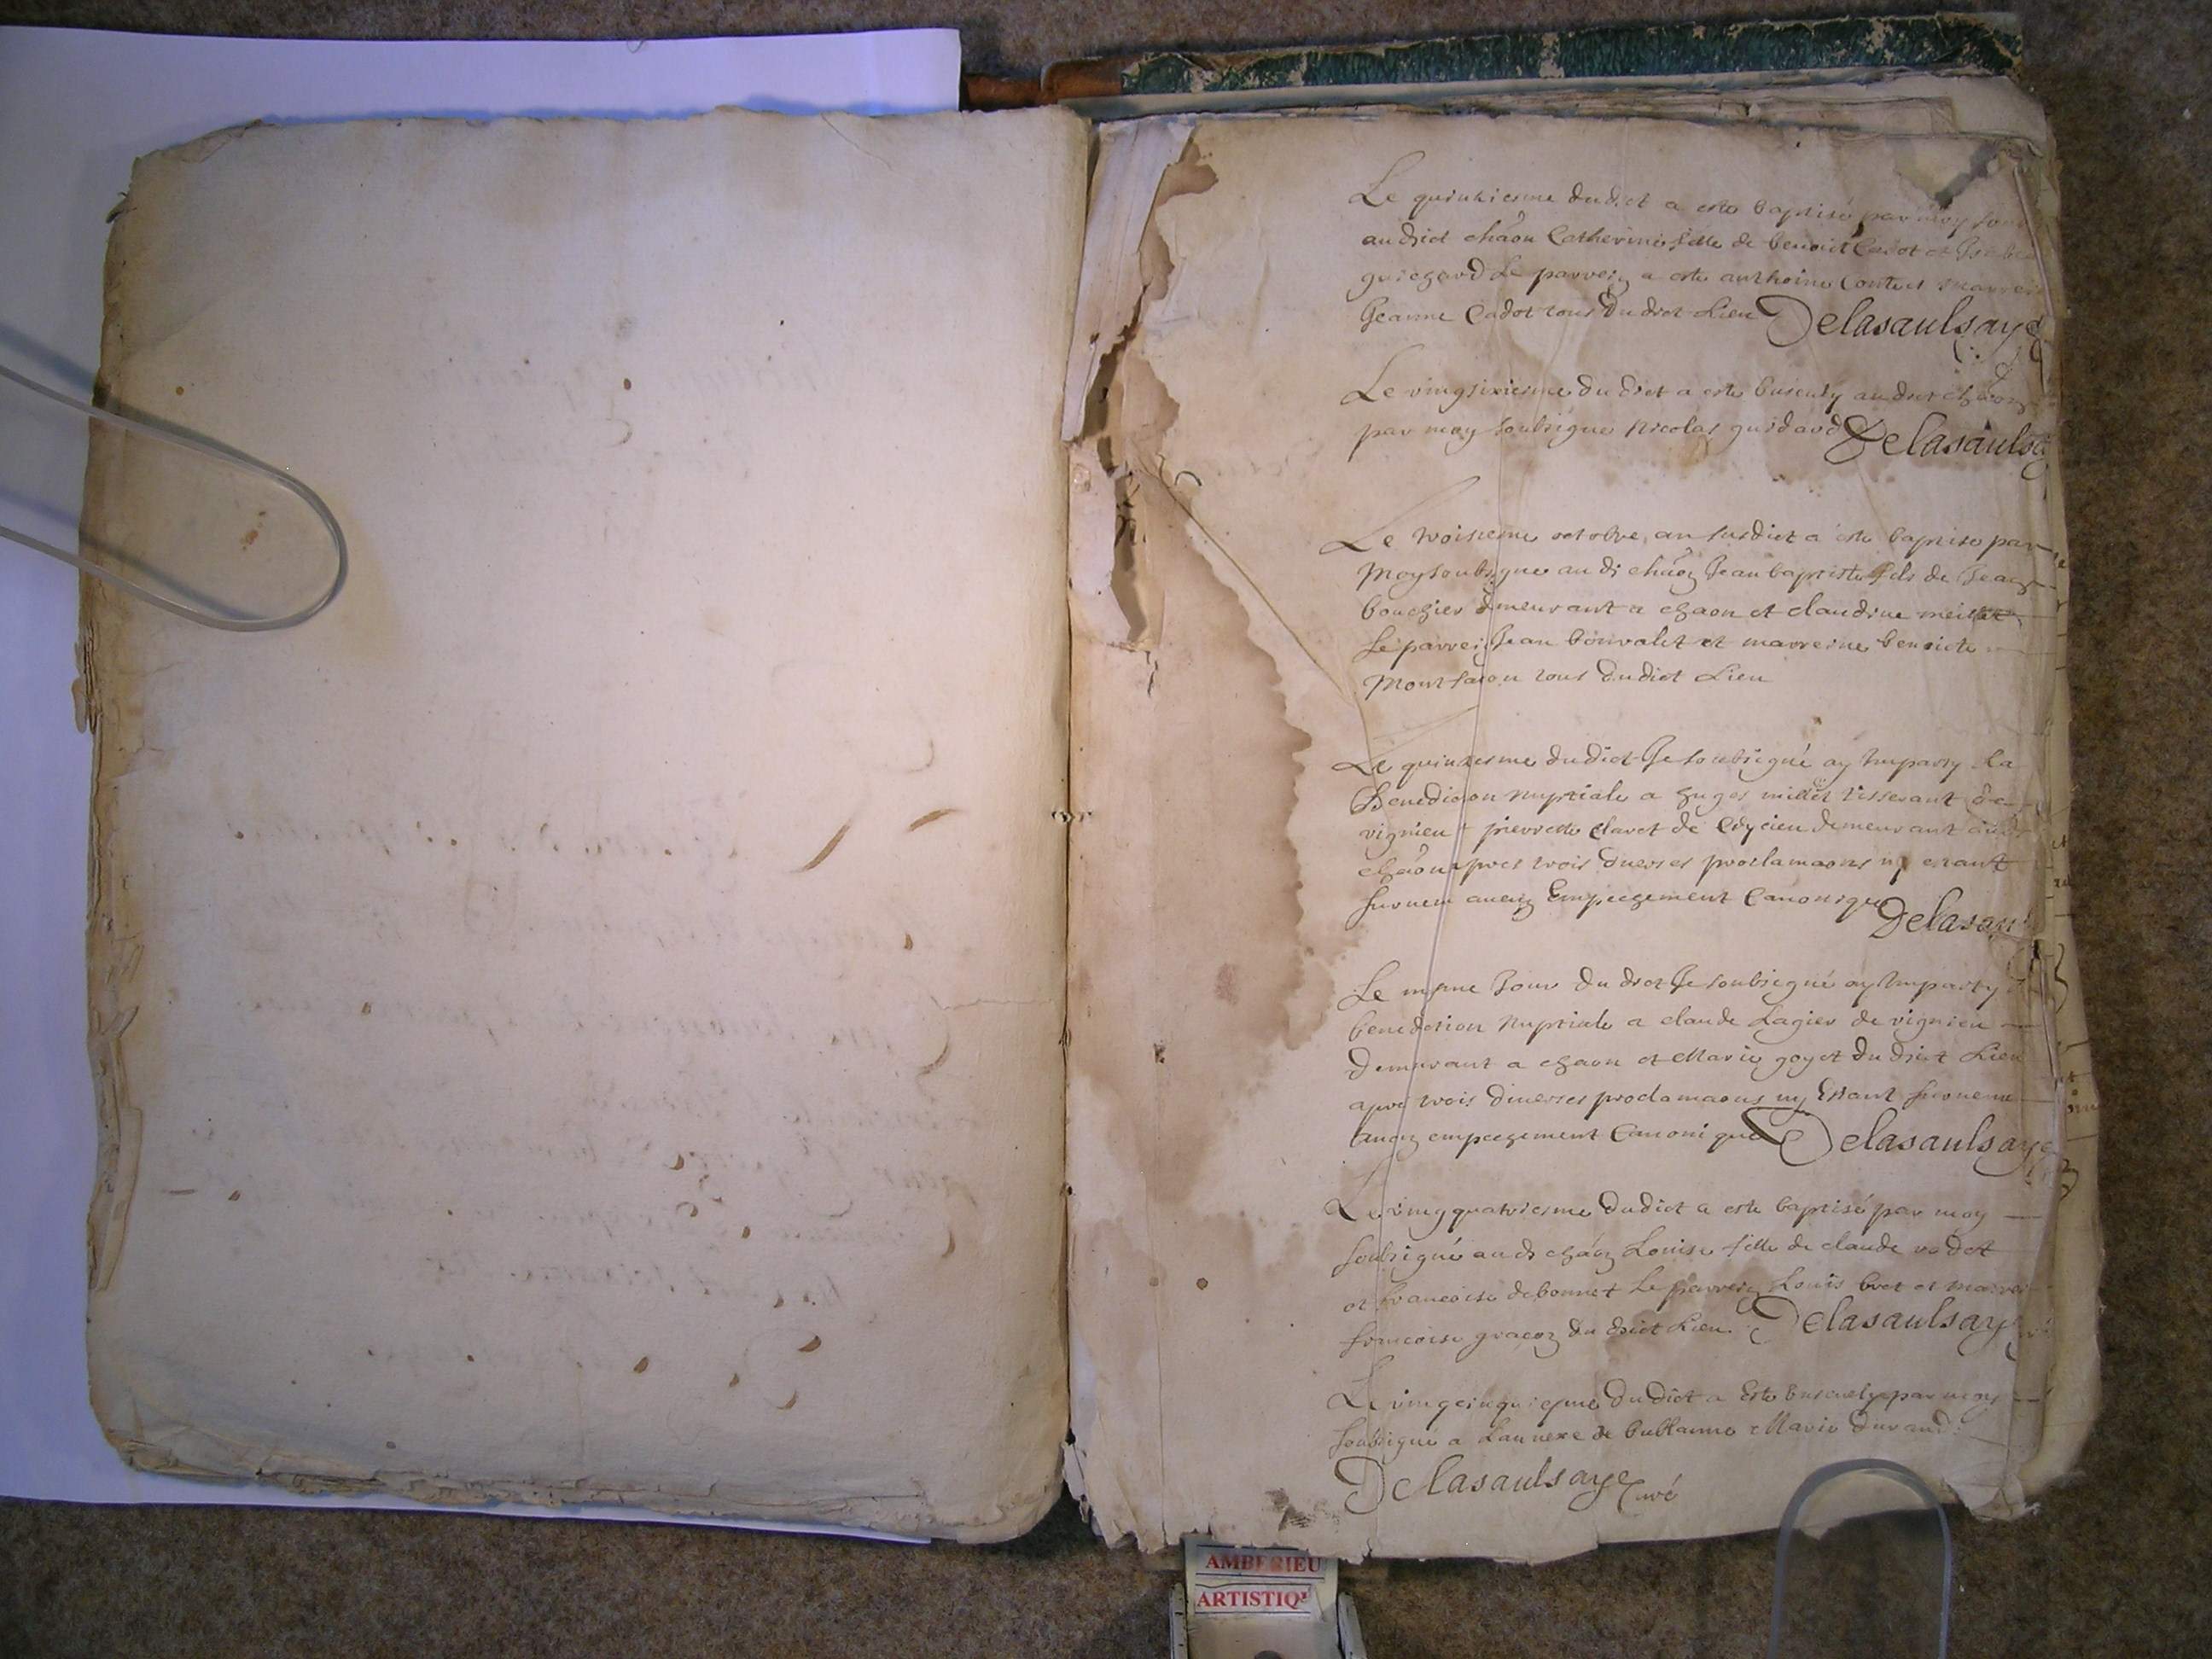 Le quinziesme dudict a este baptisé par moy sou
au dict chaon Catherine fille de benoict Cadot et
guichard Le parrein a este anthoine Contet marrei
Jeanne Cadot tous du dict Lieu Delasaulsaye
Le vingsixiesme du dict a este ensevely au dict chaon
par moy soubsigne Nicolas guidard Delasaulsa
Le troisiesme octobre, an susdict a este baptise par
Moy soubsigne au di chaon Jean baptiste fils de Jean
bouchier demeurant a chaon et claudine
Le parrein Jean bonvalet et marreine benoicte
Montfalcon tous dudict Lieu
Le quinziesme dudict Je soubsigné ay Imparty La
Benediction nuptiale a huges millet tisserant de
vignieu pierrette Claret de Cozieu demeurant
chaon apres trois diverses proclamaons ny estant
survenu aucun Empechement Canonique Delasau
Le mesme Jour du dict Je soubsigné ay Imparty
benediction nuptiale a claude Lagier de vignieu
Demeurant a chaon et Marie goyet du dict Lieu
apres trois diverses proclamaons ny Estant survenu
aucun empechement Canonique Delasaulsaye
Le vingquatriesme dudict a este baptisé par moy
soubsigné au di chaon Louise fille de claude vadot
et francoise debonnet Le parrein Louis bret et marrei
francoise gracon du dict Lieu Delasaulsaye
Le vingcinquiesme dudict a Este ensevely par moy
soubsigné a Lannexe de Marie durand
Delasaulsaye Curé
AMBERIEU
ARTISTIQ